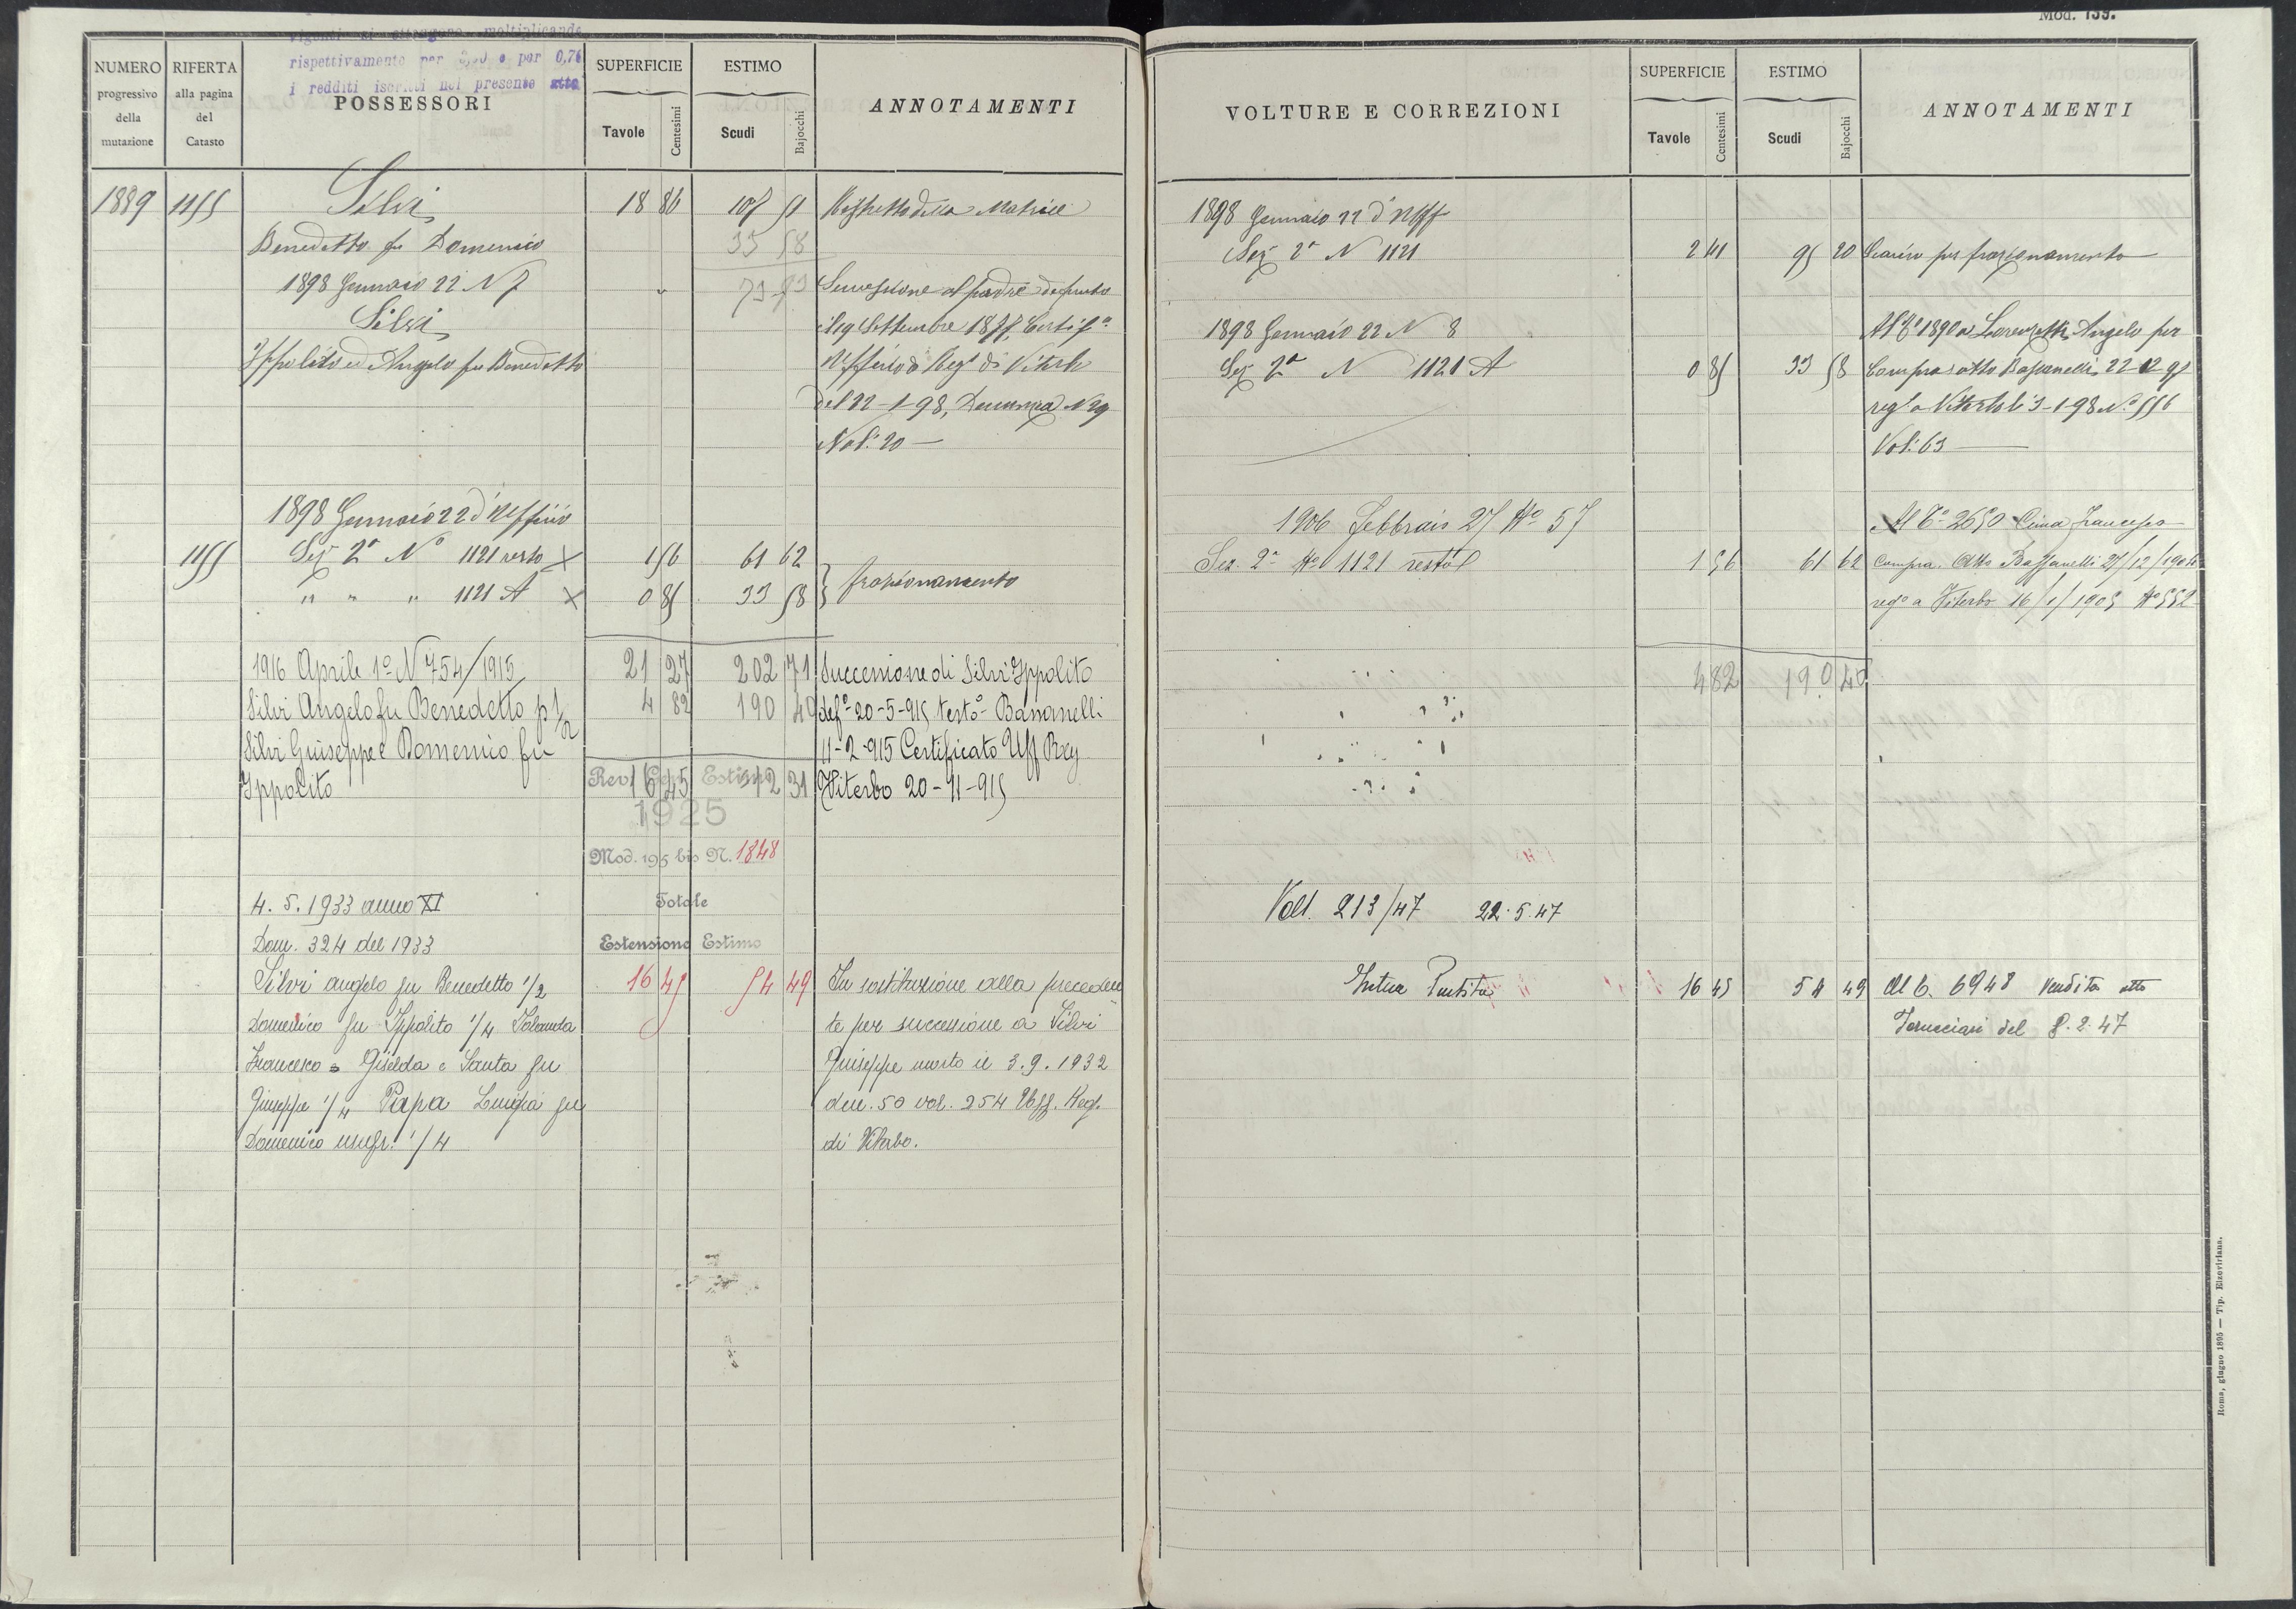 Mod. 159.
rispettivamente per e per 0,76
i redditi iscritti nel presente atto
NUMERO progressivo della mutazione
RIFERTA alla pagina del Catasto
POSSESSORI
SUPERFICIE
Tavole Centesimi
ESTIMO
Scudi Bajocchi
ANNOTAMENTI
1889 1155 Silvi 18 86 107 51 Rispetto della Matrice
Benedetto fu Domenico 33 58
1898 Gennaio 22 N 7 Successione al padre defunto
Silvi
Ippolito ed Angelo fu Benedetto Ufficio di Reg. di Viterbo
del 22-1-98, Denunzia N 29
Vol. 20
1898 Gennaio 22 d'Ufficio
1155 Sez 2ª Nº 1121 resto X 1 56 61 62
" " " 1121 A X 0 85 33 58 frazionamento
1916 Aprile 1º N 754/1915 21 27 202 71 Successione di Silvi Ippolito
Silvi Angelo fu Benedetto p 1/2 4 82 190 40 defº 20-5-915 testº Bassanelli
Silvi Giuseppe e Domenico fu 11-2-915 Certificato Uff Reg
Ippolito 16 45 12 31 Viterbo 20-11-915
1925
Mod. 195 bis N. 1848
4. 5. 1933 anno XI Totale
Dom. 324 del 1933 Estensione Estimo
Silvi angelo fu Benedetto 1/2 16 45 54 49 In sostituzione alla preceden
Domenico fu Ippolito 1/4 Iolanda te per successione a Silvi
Francesco Giselda e Santa fu Giuseppe morto il 3.9.1932
Giuseppe 1/4 Papa Luigia fu den. 50 vol. 254 Uff. Reg.
Domenico usufr. 1/4 di Viterbo.
VOLTURE E CORREZIONI
SUPERFICIE
Tavole Centesimi
ESTIMO
Scudi Bajocchi
ANNOTAMENTI
1898 Gennaio 22 d'Uff
Sez 2ª N 1121 2 41 95 20 Scarico per frazionamento
1898 Gennaio 22 N 8 Al Cº 1890 a Lorenzetti Angelo per
Sez 2ª N 1121 A 0 85 33 58 Compra atto Bassanelli 22-12-97
regº a Viterbo li 3-1-98 Nº 556
Vol. 63
1906 Febbraio 27 Nº 57 Al Cº 2650 Cima Francesco
Sez. 2ª Nº 1121 resto 1 56 61 62 Compra. Atto Bassanelli 27/12/1904
regº a Viterbo 16/1/1905 Nº 552
4 82 190 40
Volt. 213/47 22.5.47
Intera Partita 16 45 54 49 Al C. 6948 vendita atto
del 8.2.47
Roma, giugno 1895 — Tip. Elzeviriana.